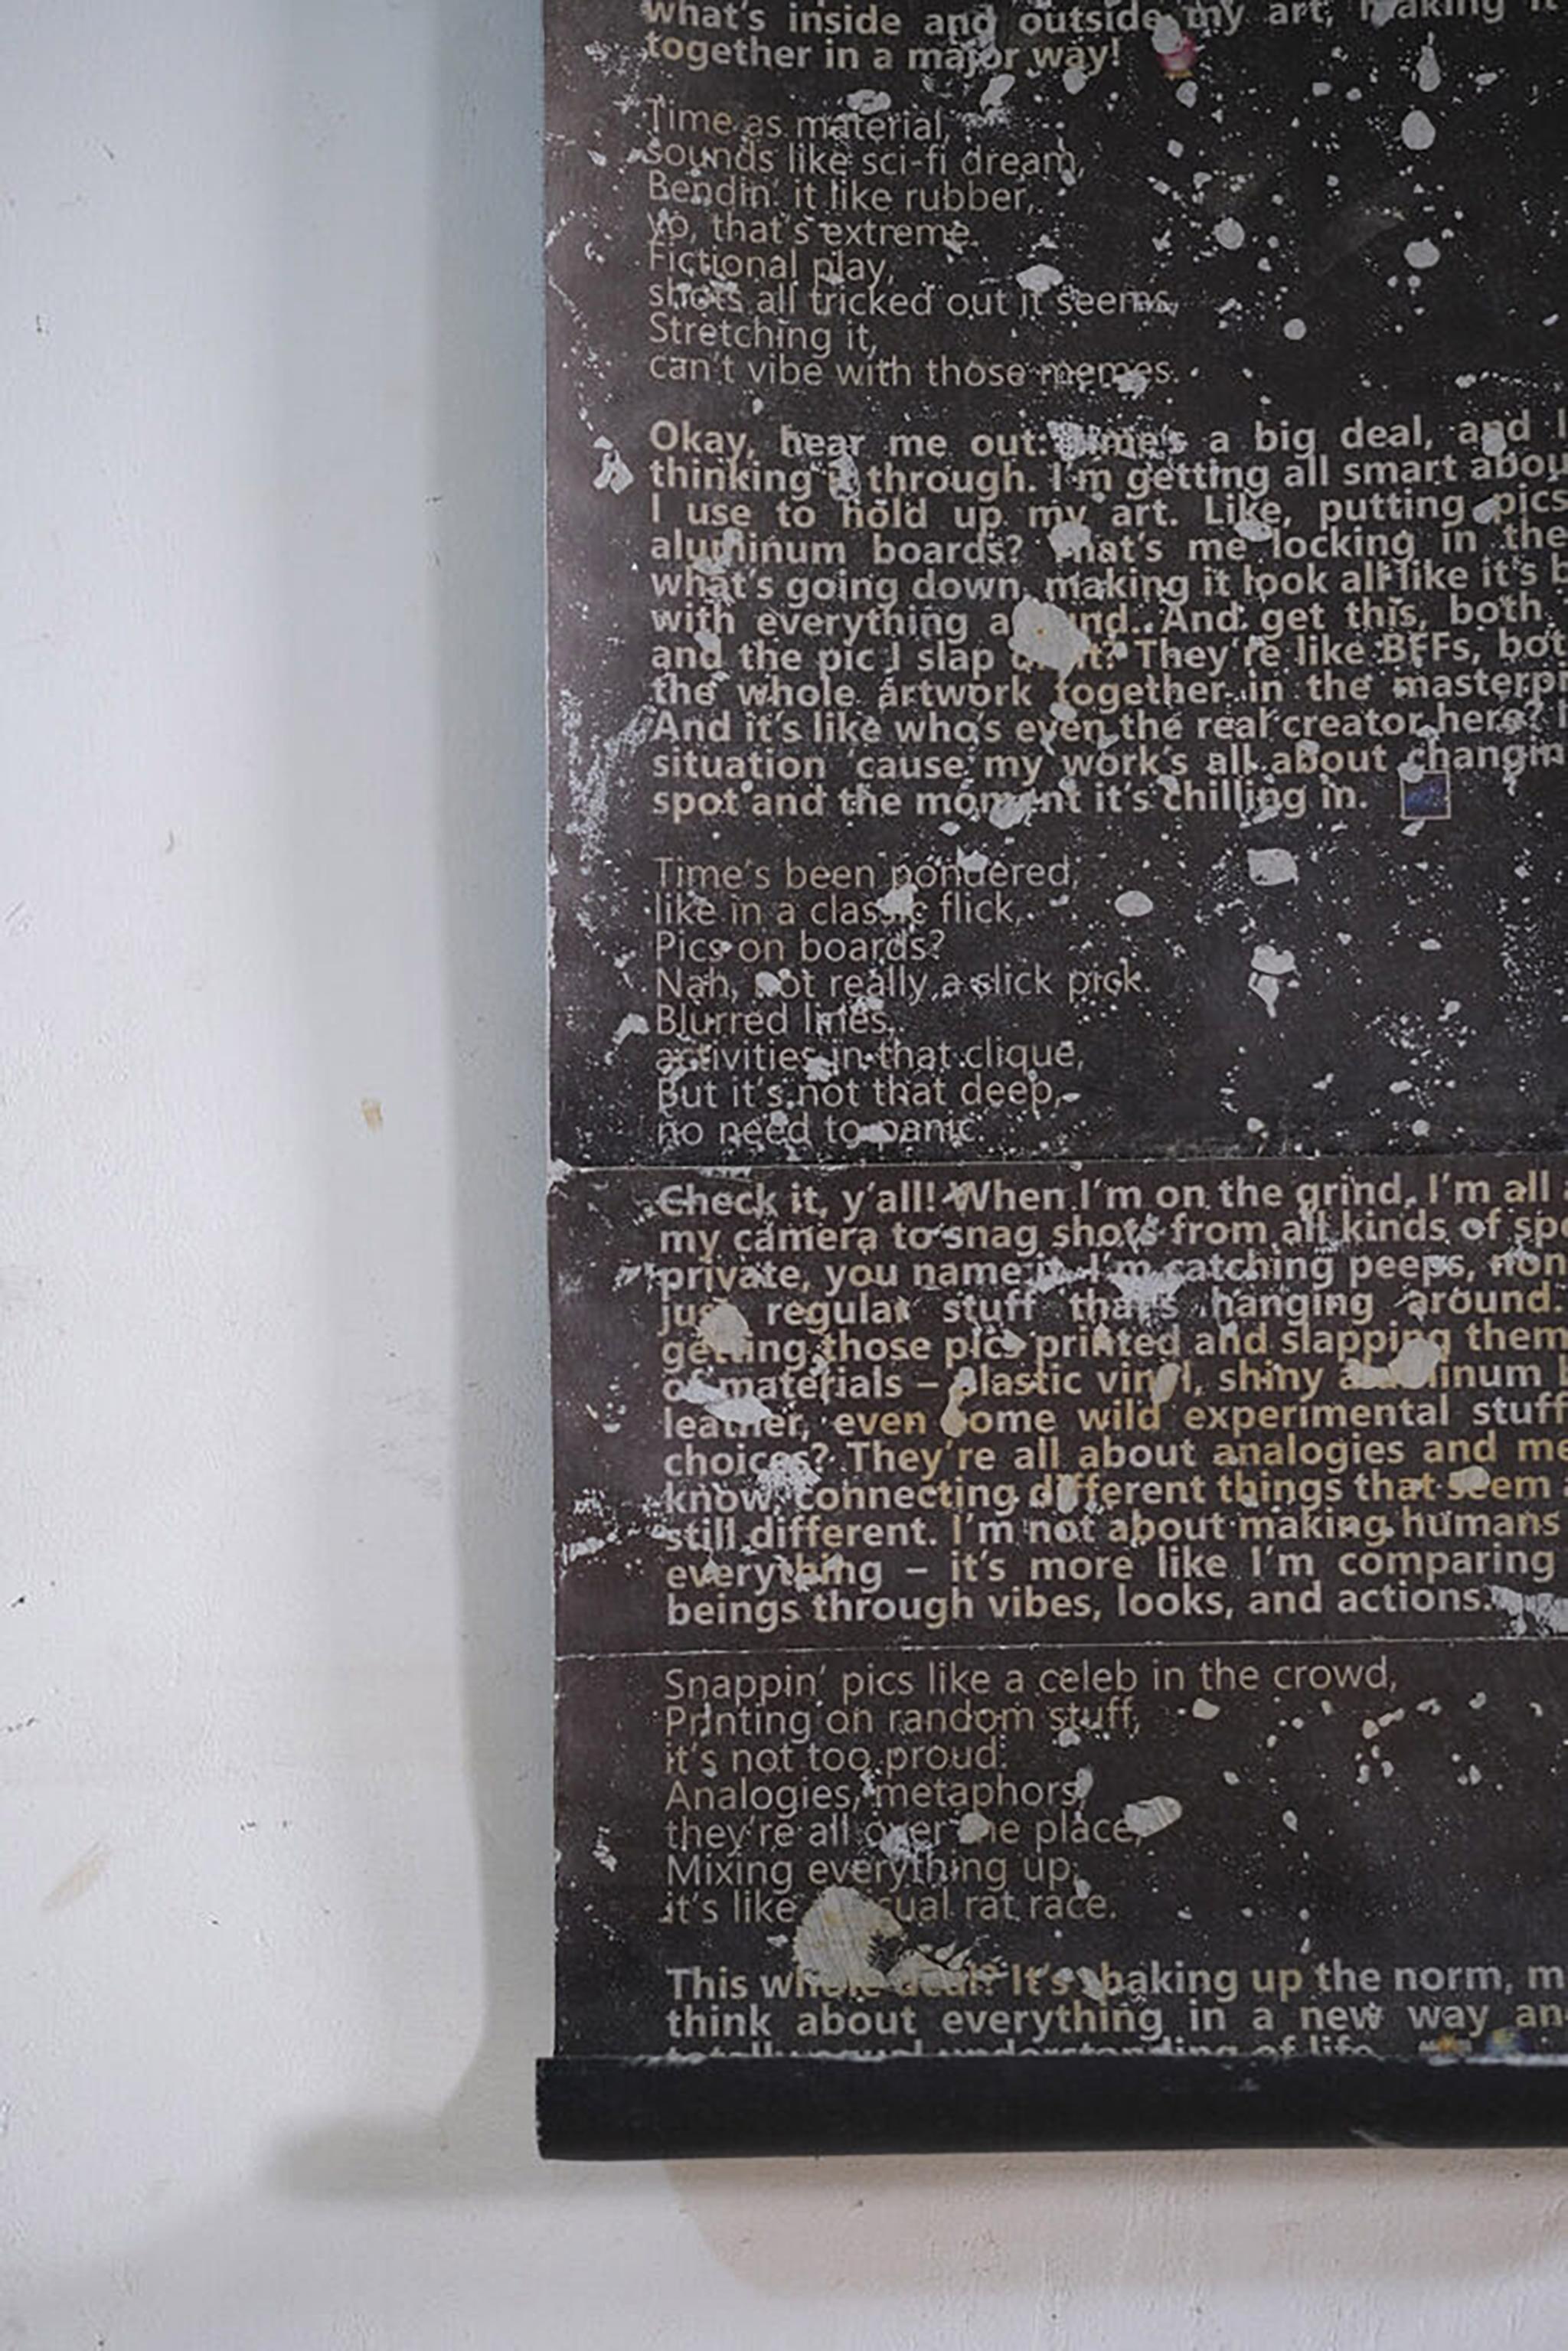 what's inside and outside my art, making it
together in a major way!
Time as material,
sounds like sci-fi dream,
Bendin' it like rubber,
yo, that's extreme.
Fictional play,
shots all tricked out it seems,
Stretching it,
can't vibe with those memes.
Okay, hear me out: time's a big deal, and I
thinking it through. I'm getting all smart abou
I use to hold up my art. Like, putting pics
aluminum boards? That's me locking in the
what's going down, making it look all like it's b
with everything around. And get this, both
and the pic I slap on it? They're like BFFs, bot
the whole artwork together in the masterpi
And it's like who's even the real creator here?
situation 'cause my work's all about changin
spot and the moment it's chilling in.
Time's been pondered,
like in a classic flick,
Pics on boards?
Nah, not really a slick pick.
Blurred lines,
activities in that clique,
But it's not that deep,
no need to panic.
Check it, y'all! When I'm on the grind, I'm all
my camera to snag shots from all kinds of spo
private, you name it. I'm catching peeps, non
just regular stuff that's hanging around.
getting those pics printed and slapping them
of materials – plastic vinyl, shiny aluminum b
leather, even some wild experimental stuff
choices? They're all about analogies and me
know, connecting different things that seem
still different. I'm not about making humans
everything – it's more like I'm comparing
beings through vibes, looks, and actions.
Snappin' pics like a celeb in the crowd,
Printing on random stuff,
it's not too proud.
Analogies, metaphors,
they're all over the place,
Mixing everything up,
it's like rat race.
This whole deal? It's shaking up the norm, m
think about everything in a new way an
totally equal understanding of life.